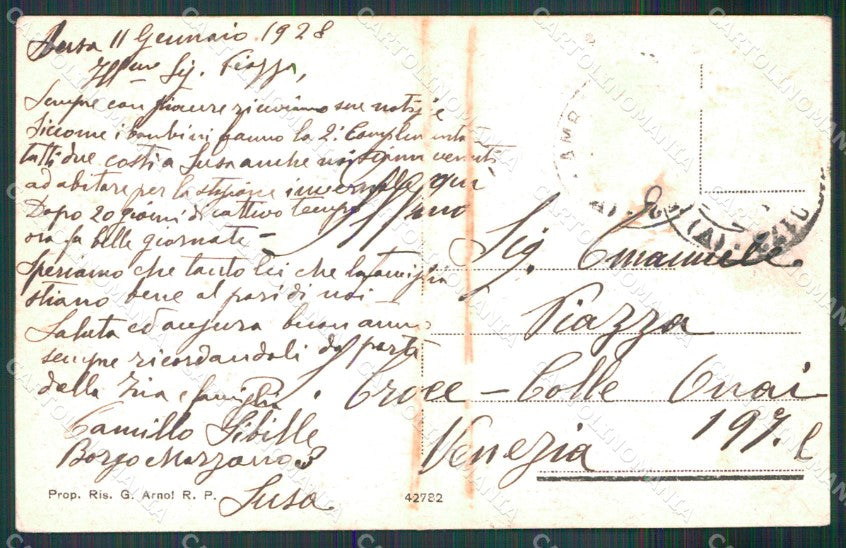 Susa 11 Gennaio 1928
Ill.mo Sig. Piazza,
Sempre con piacere riceviamo sue notizie
Siccome i bambini fanno la 2a Complementare
tutti due costi a Susa anche noi siamo venuti
ad abitare per la stagione invernale qui
Dopo 20 giorni di cattivo tempo
ora fa belle giornate
Speriamo che tanto lei che la famiglia
stiano bene al pari di noi
Saluta ed augura buon anno
sempre ricordandoli da parte
della Zia e famiglia
Camillo Sibille
Borgo Mazzarro 3
Susa
Prop. Ris. G. Arnol R. P.
42782
Sig. Emanuele
Piazza
Croce - Colle
197.
Venezia
CARTOLINOMANIA